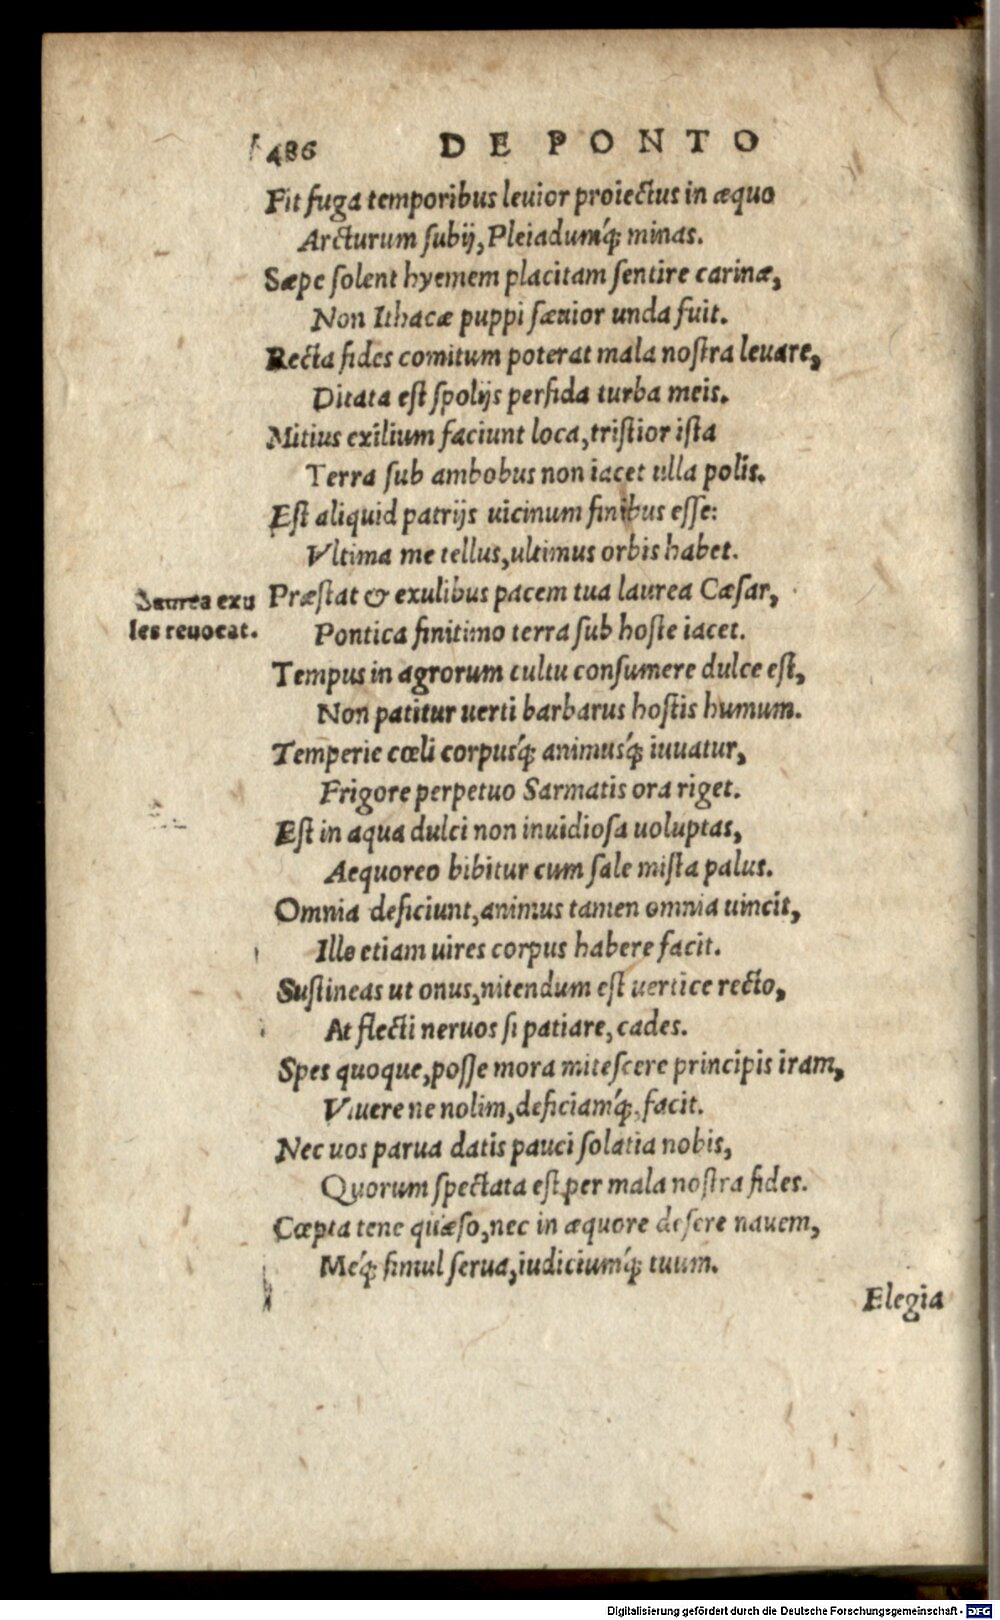 486 DE PONTO
Fit fuga temporibus leuior proiectus in æquo
Arcturum subij, Pleiadumq́; minas.
Sæpe solent hyemem placitam sentire carinæ,
Non Ithacæ puppi sæuior unda fuit.
Recta fides comitum poterat mala nostra leuare,
Ditata est spolijs perfida turba meis.
Mitius exilium faciunt loca, tristior ista
Terra sub ambobus non iacet ulla polis.
Est aliquid patrijs uicinum finibus esse:
Vltima me tellus, ultimus orbis habet.
Laurea exu
les reuocat.
Præstat & exulibus pacem tua laurea Cæsar,
Pontica finitimo terra sub hoste iacet.
Tempus in agrorum cultu consumere dulce est,
Non patitur uerti barbarus hostis humum.
Temperie cœli corpusq́; animusq́; iuuatur,
Frigore perpetuo Sarmatis ora riget.
Est in aqua dulci non inuidiosa uoluptas,
Aequoreo bibitur cum sale mista palus.
Omnia deficiunt, animus tamen omnia uincit,
Ille etiam uires corpus habere facit.
Sustineas ut onus, nitendum est uertice recto,
At flecti neruos si patiare, cades.
Spes quoque, posse mora mitescere principis iram,
Viuere ne nolim, deficiamq́;, facit.
Nec uos parua datis pauci solatia nobis,
Quorum spectata est per mala nostra fides.
Cœpta tene quæso, nec in æquore desere nauem,
Meq́; simul serua, iudiciumq́; tuum.
Elegia
Digitalisierung gefördert durch die Deutsche Forschungsgemeinschaft - DFG